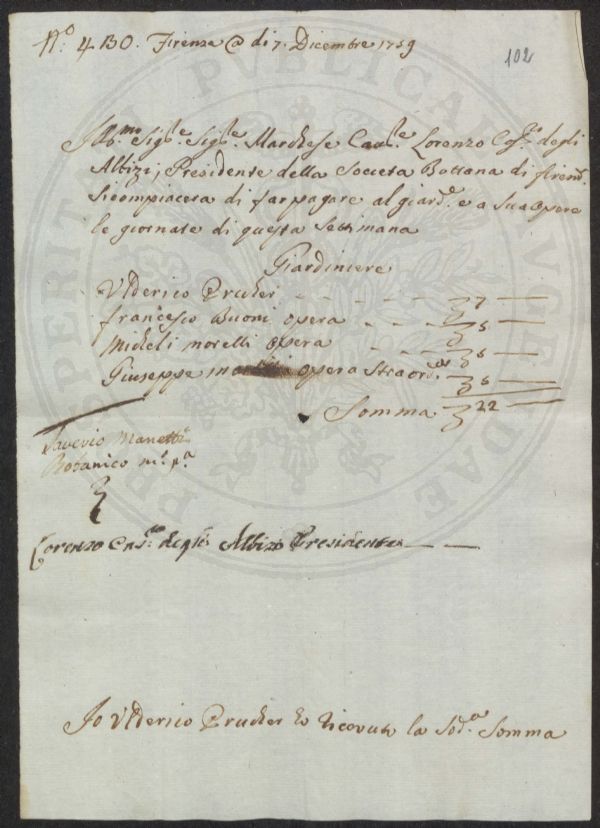 N.º 4 BO. Firenze @ di 7. Dicembre 1759
102
Ill.mo Sig.re Sig.re Marchese Cav.re Lorenzo degli
Albizi, Presidente della Società Bottana di firenz.
Sicompiacera di far pagare al giard.e e a Sua opere
le giornate di questa Settimana
Giardiniere
Ulderico Prucker - - - 7 —
francesco Buoni opera - - - 5 —
Micheli morelli opera - - 5 —
Giuseppe opera Straord. 5 —
Somma 22 —
Saverio Manetti
Botanico m.º p.ª
Lorenzo degli Albizi Presidente — —
Io Ulderico Prucker ho ricevuto la Sod.ª Somma
PROSPERITATI PUBLICAE AUGENDAE